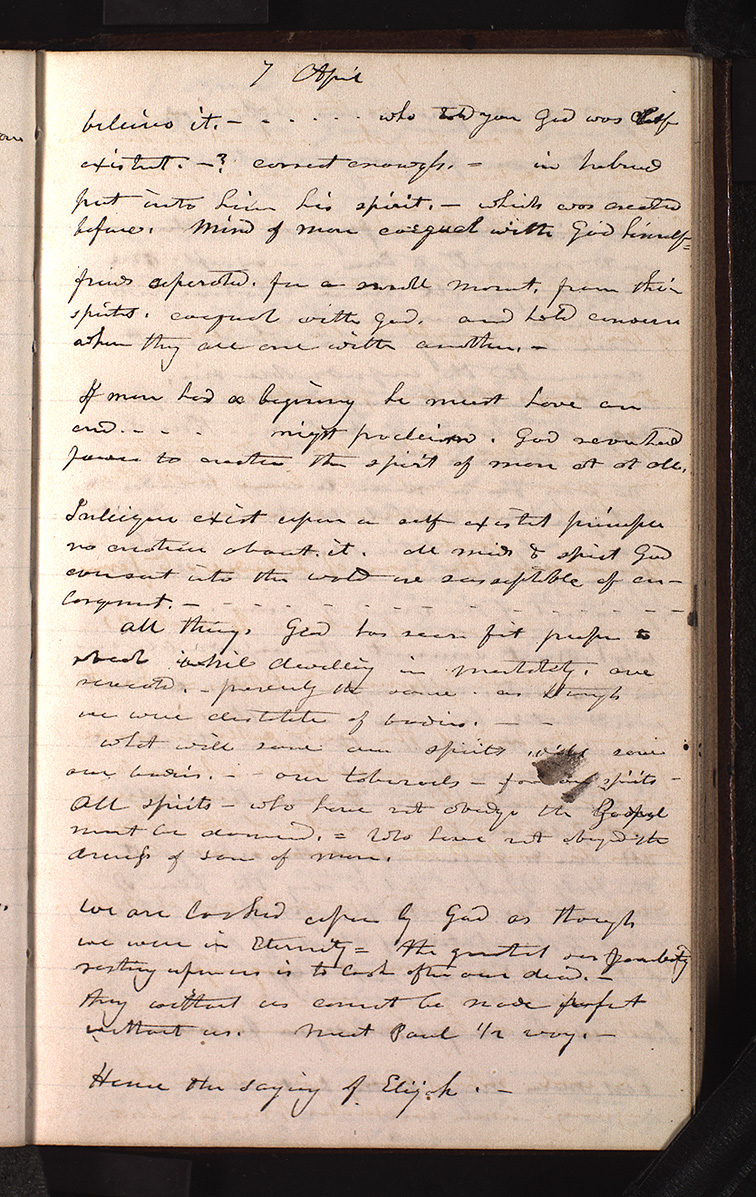 7 April
believe it. - - - - - - who told you God was self
existent. -? correct enough. - in hebrew
put into him his spirit. - which was created
before. Mind of man coequal with God himself
friends seperated. for a small momt. from their
spirits. coequal with God. and hold converse
when they are one with another. -
If man had a begining he must have an
end. - - - might proclaim. God never had
power to create the spirit of man at at all.
Inteligue exist upon a self existet principle
no creation about it. all mids & spirit God
ever sent into the world are susseptible of en-
largmnt. - - - - - - - - - -
all things God has seen fit proper to
reveal while dwelling in mortality. are
revealed. - precisely the same as though
we were destitite of bodies. - -
what will save our spirits will save
our bodies. - - our tabernacls - for our spirits -
All spirits - who have not obeyd the Gospel
must be damned. = Who have not obeyd the
decrees of son of man.
we are looked upon by God as though
we were in Eternity = the greatest responsbity
resting upon us is to look after our dead. -
they without us cannot be made perfect
without us. Meet Paul 1/2 way. -
Hence the saying of Elijah. -